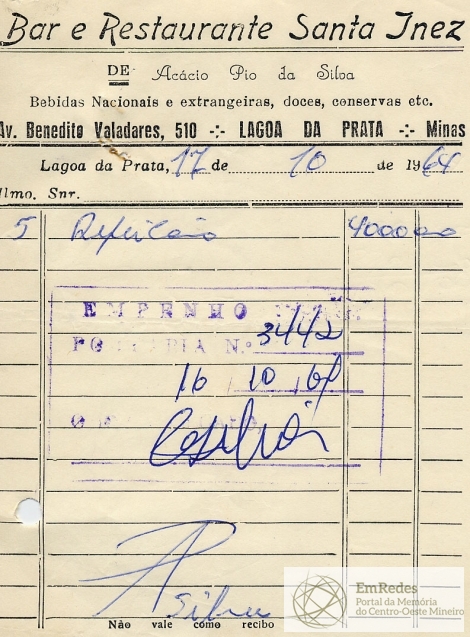 Bar e Restaurante Santa Inez
DE Acácio Pio da Silva
Bebidas Nacionais e extrangeiras, doces, conservas etc.
Av. Benedito Valadares, 510 -:- LAGOA DA PRATA -:- Minas
Lagoa da Prata, 17 de 10 de 1964
Ilmo. Snr.
5 Refeicão 4000
EMPENHO
PORTARIA N.º 3442
16 10 64
Silva
Não vale como recibo
EmRedes
Portal da Memória
do Centro-Oeste Mineiro